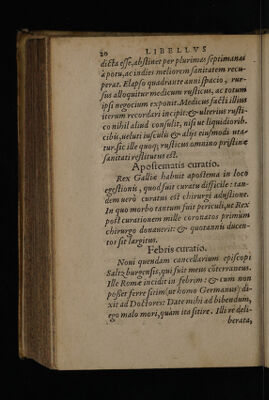 20 LIBELLVS
dicta esse, abstinet per plurimas septimanas
à potu, ac indies meliorem sanitatem recu-
perat. Elapso quadrante anni spacio, rur-
sus alloquitur medicum rusticus, ac totum
ipsi negocium exponit. Medicus facti illius
iterum recordari incipit: & ulterius rusti-
co nihil aliud consulit, nisi ut liquidiorib.
cibis, ueluti iusculis & alijs eiusmodi uta-
tur. sic ille quoq; rusticus omnino pristinæ
sanitati restitutus est.
Apostematis curatio.
Rex Galliæ habuit apostema in loco
egestionis, quod fuit curatu difficile: tan-
dem uerò curatus est chirurgi adustione.
In quo morbo tantum fuit periculi, ut Rex
post curationem mille coronatos primùm
chirurgo donauerit: & quotannis ducen-
tos sit largitus.
Febris curatio.
Noui quendam cancellarium episcopi
Saltzburgensis, qui fuit meus cōterraneus.
Ille Romæ incidit in febrim: & cum non
posset ferre sitim (ut homo Germanus) di-
xit ad Doctores: Date mihi ad bibendum,
ego malo mori, quàm ita sitire. Illi re deli-
berata,